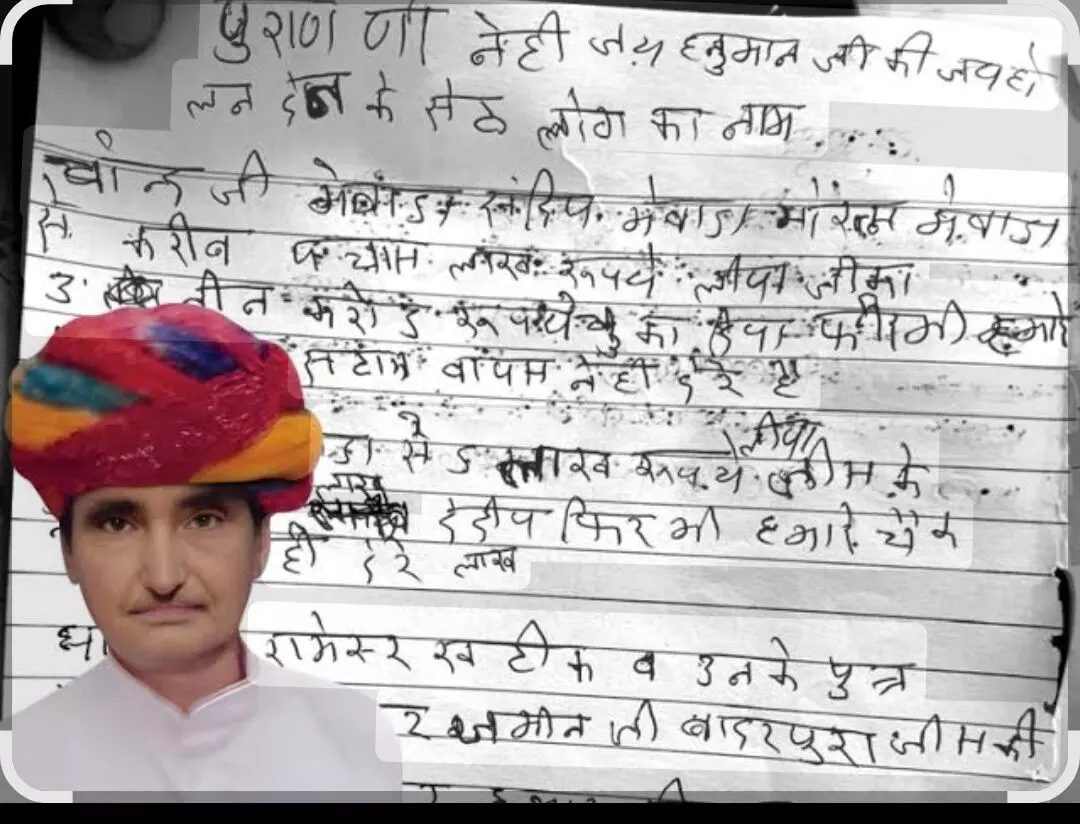 पुराण णी नेही जय हनुमान जी की जय हो
लन देन के सेठ लोग का नाम
जी मेवाडा संदिप मेवाडा मेवाडा
से करीब पचास लाख रूपये लीया जीका
3 तीन करोड रूपये चुका दीया फिर भी हमारे
स्टाम वापस नेही दे रे है
डा से 5 लाख रूपये लीया जीस के
लाख दे दीप फिर भी हमारे चैक
ही दे रे लाख
रामेस्र खटीक व उनके पुत्र
र जमीन जी बादरपुरा जीसकी